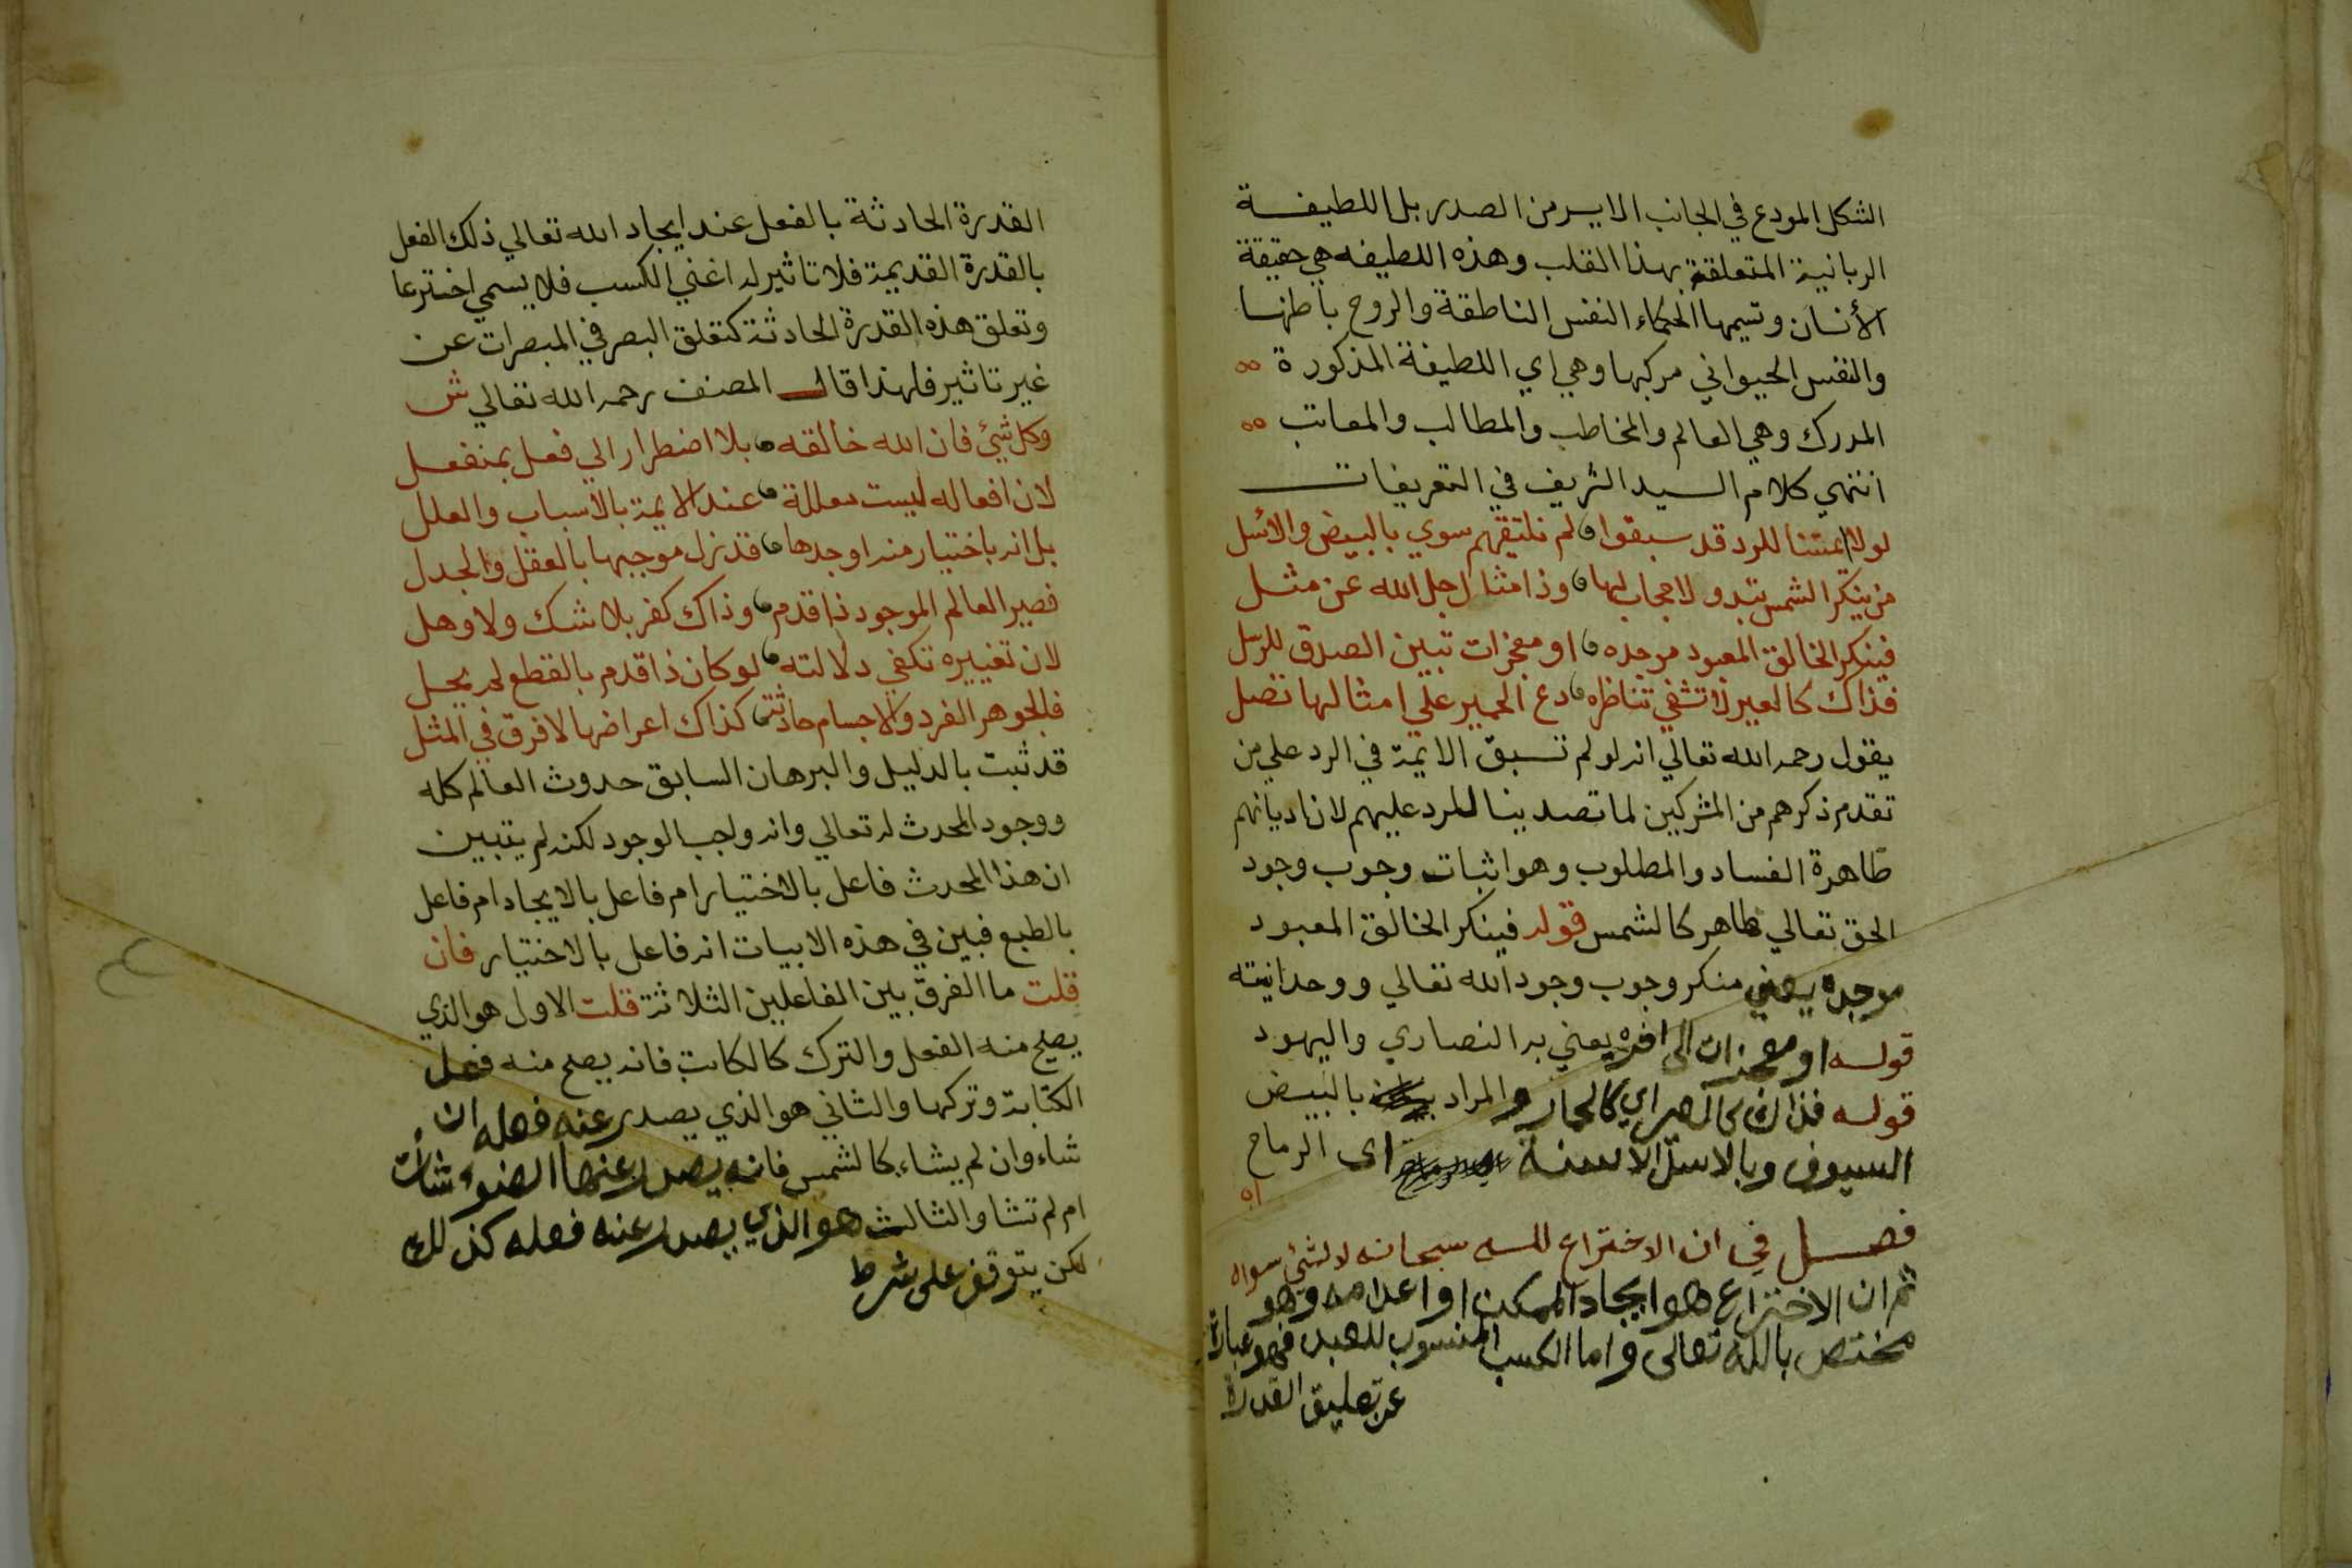 الشكل المودع في الجانب الايسر من الصدر بل اللطيفة
الربانية المتعلقة بهذا القلب وهذه اللطيفه هي حقيقة
الأنسان وتسميها الحكماء النفس الناطقة والروح باطنها
والنفس الحيواني مركبها وهي اي اللطيفة المذكورة
المدرك وهي العالم والمخاطب والمطالب والمعاتب
انتهي كلام السيد الشريف في التعريفات
لولا ائمتنا للرد قد سبقوا لم نلتقيهم سوي بالبيض والأسل
من ينكر الشمس تبدو لا حجاب لها وذا مثال اجل الله عن مثل
فينكر الخالق المعبود موجده او معجزات تبين الصدق للرسل
فذاك كالعير لا تشفي تناظره دع الحمير علي امثالها تصل
يقول رحمه الله تعالي انه لو لم تسبق الايمة في الرد علي من
تقدم ذكرهم من المشركين لما تصدينا للرد عليهم لان اديانهم
ظاهرة الفساد والمطلوب وهو اثبات وجوب وجود
الحق تعالي ظاهر كالشمس قوله فينكر الخالق المعبود
موجده يعني منكر وجوب وجود الله تعالي ووحدانيته
قوله او معجزات الى اخره يعني به النصاري واليهود
قوله فذاك كالعير اي كالحمار والمراد بالبيض
السيوف وبالاسل الاسنة اى الرماح
اه
فصل في ان الاختراع لله سبحانه لا لشئ سواه
ثم ان الاختراع هو ايجاد الممكن او اعدامه وهو
مختص بالله تعالى واما الكسب المنسوب للعبد فهو عبارة
عن تعليق القدرة
القدرة الحادثة بالفعل عند ايجاد الله تعالي ذلك الفعل
بالقدرة القديمة فلا تاثير له اغني الكسب فلا يسمي اخترعا
وتعلق هذه القدرة الحادثة كتعلق البصر في المبصرات عن
غير تاثير فلهذا قال المصنف رحمه الله تعالي ش
وكل شيئ فان الله خالقه بلا اضطرار الي فعل بمنفعل
لان افعاله ليست معللة عند الايمة بالأسباب والعلل
بل انه باختيار منه اوجدها قد نزل موجبها بالعقل والجدل
فصير العالم الموجود ذا قدم وذاك كفر بلا شك ولا وهل
لان تغييره تكفي دلالته لو كان ذا قدم بالقطع لم يحل
فالجوهر الفرد والاجسام حادثة كذاك اعراضها لا فرق في المثل
قد ثبت بالدليل والبرهان السابق حدوث العالم كله
ووجود المحدث له تعالي وانه واجب الوجود لكنه لم يتبين
ان هذا المحدث فاعل بالاختيار ام فاعل بالايجاد ام فاعل
بالطبع فبين في هذه الابيات انه فاعل بالاختيار فان
قلت ما الفرق بين الفاعلين الثلاثة قلت الاول هو الذي
يصلح منه الفعل والترك كالكاتب فانه يصلح منه فعل
الكتابة وتركها والثاني هو الذي يصدر عنه فعله ان
شاء وان لم يشاء كالشمس فانه يصدر عنها الضوء شأت
ام لم تشا والثالث هو الذي يصدر عنه فعله كذلك
لكن يتوقف على شرط